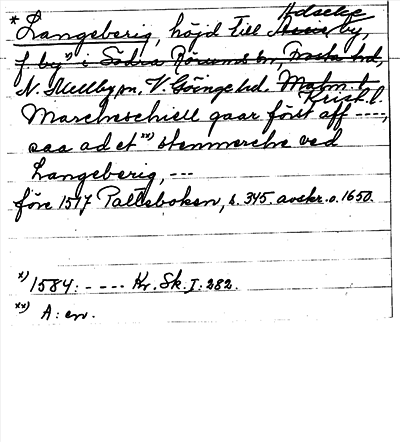 Adseke
* Langeberig, höjd till Assis by,
f by x) i Södra Rörums sn, Frosta hd,
N. Mellby sn, V. Göinge hd. Malm. l.
Krist. l.
Marcheschiell gaar först aff ----,
saa ad et xx) stenmerche ved
Langeberig, ---
före 1517 Palteboken, s. 345. avskr. o. 1650.
x) 1584: - --- Kr. Sk. I: 282.
xx) A: en.